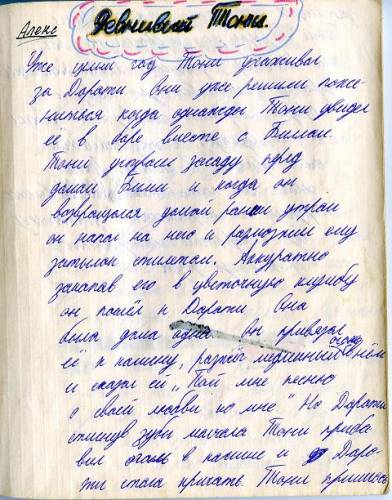 Алекс
Ревнивый Тони.
Уже целый год Тони ухаживал
за Дороти Они уже решили поже-
ниться когда однажды Тони увидел
её в баре вместе с Билли.
Тони устроил засаду перед
домом Билли и когда он
возвращался домой рано утром
он напал на него и размозжил ему
затылок Аккуратно
закопав его в цветочную клумбу
он пошёл к Дороти Она
была дома одна Он привязал
её к камину, разжёг медленный огонь
и сказал ей „Пой мне песню
о своей любви ко мне" Но Дороти
стиснув зубы молчала Тони приба
вил огонь в камине и Доро-
ти стала кричать. Тони пришлось